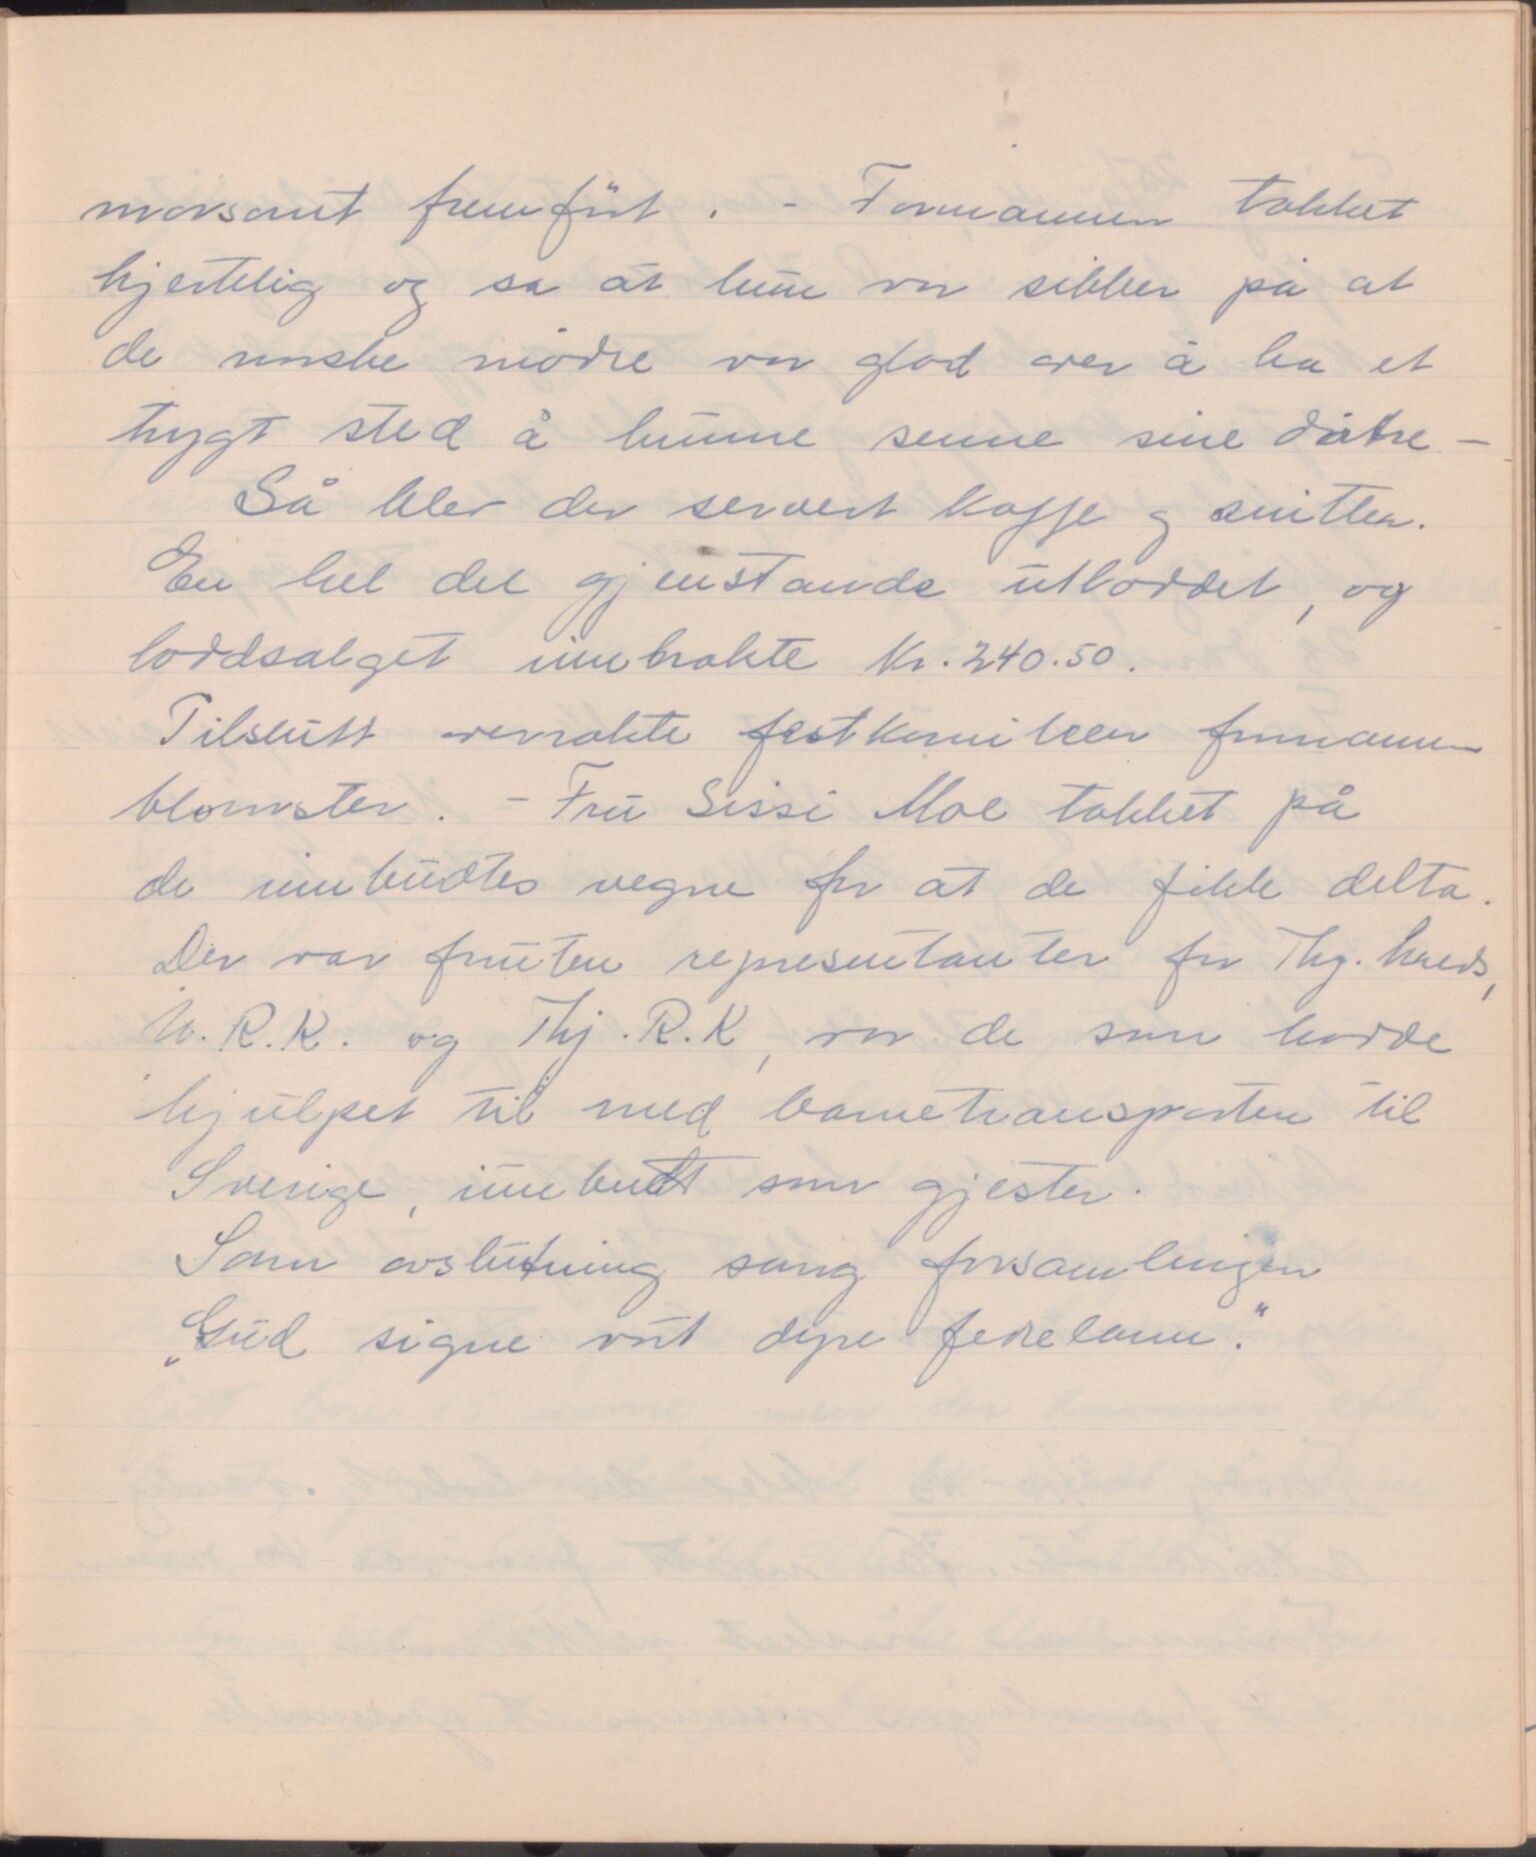 morsomt fremført. - Formannen takket
hjertelig og sa at hun var sikker på at
de norske mødre var glad over å ha et
trygt sted å kunne senne sine døtre -
Så blev der servert kaffe og snitter.
En hel del gjenstande utloddet, og
loddsalget innbrakte Kr. 240.50.
Tilslutt overrakte festkomiteen formannen
blomster. - Frú Sissi Moe takket på
de innbudtes vegne for at de fikk delta.
Der var foruten representanter for Thg. kreds,
N.R.K. og Thj. R.K, var de som hadde
hjulpet til med barnetransporten til
Sverige, innbudt som gjester.
Som avslutning sang forsamlingen
„Gud signe vårt dyre fedreland."